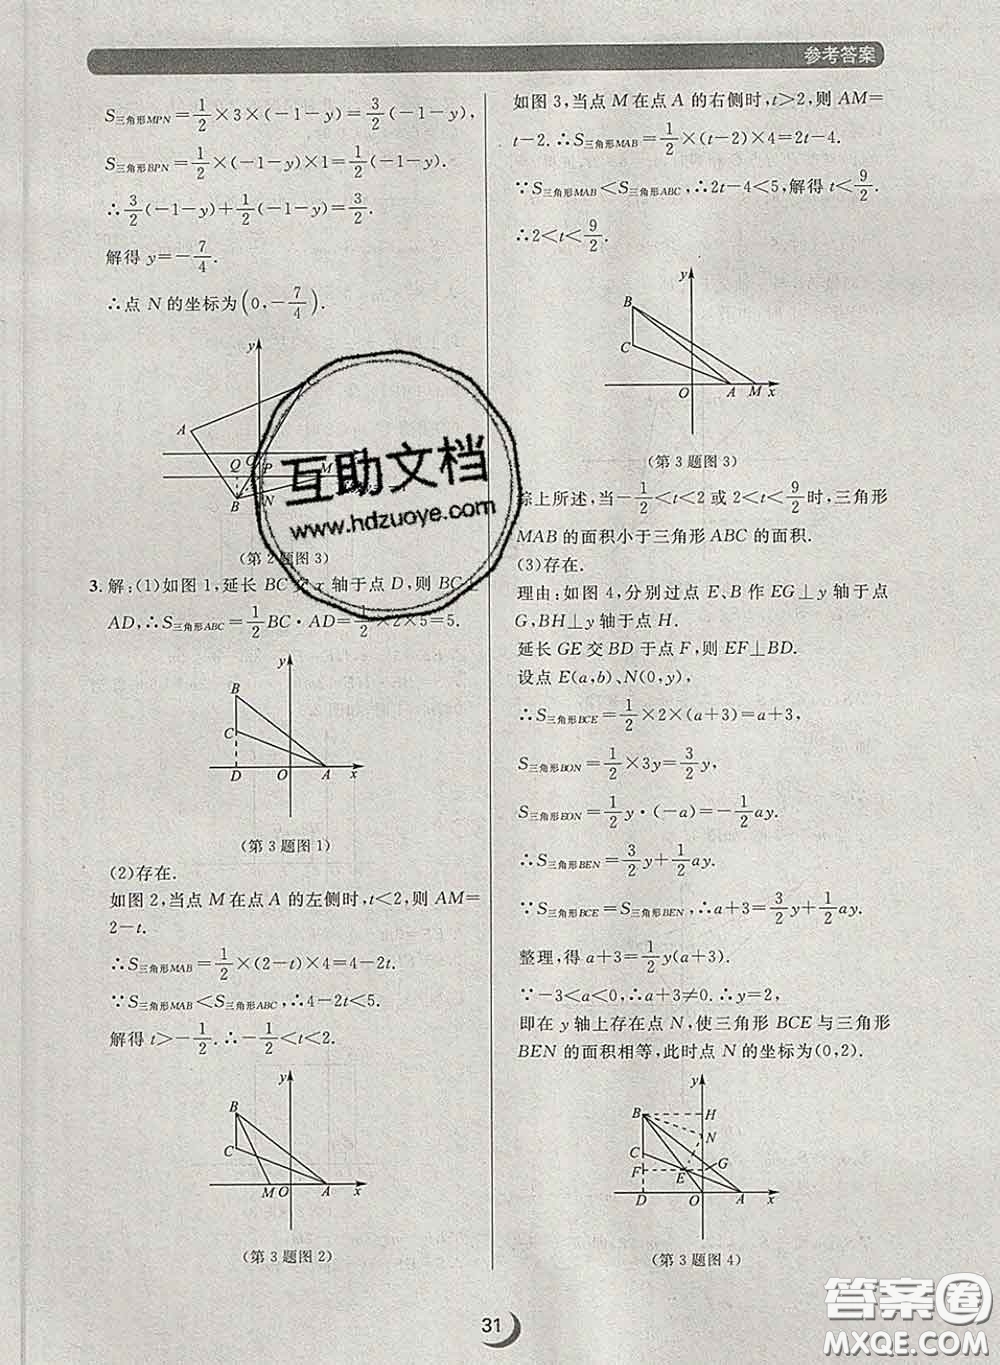 参考答案
S三角形MPN=1/2×3×(-1-y)=3/2(-1-y),
S三角形BPN=1/2×(-1-y)×1=1/2(-1-y).
∴3/2(-1-y)+1/2(-1-y)=3/2.
解得 y=-7/4.
∴点 N 的坐标为(0,-7/4).
y
A
Q
P
M
B
N
(第 2 题图 3)
3. 解:(1)如图 1,延长 BC 交 x 轴于点 D,则 BC
AD,∴S三角形ABC=1/2 BC·AD=1/2×2×5=5.
y
B
C
D O A x
(第 3 题图 1)
(2)存在.
如图 2,当点 M 在点 A 的左侧时,t<2,则 AM=
2-t.
∴S三角形MAB=1/2×(2-t)×4=4-2t.
∵S三角形MAB<S三角形ABC,∴4-2t<5.
解得 t>-1/2.∴-1/2<t<2.
y
B
C
M O A x
(第 3 题图 2)
如图 3,当点 M 在点 A 的右侧时,t>2,则 AM=
t-2.∴S三角形MAB=1/2×(t-2)×4=2t-4.
∵S三角形MAB<S三角形ABC,∴2t-4<5,解得 t<9/2.
∴2<t<9/2.
y
B
C
O A M x
(第 3 题图 3)
综上所述,当-1/2<t<2 或 2<t<9/2时,三角形
MAB 的面积小于三角形 ABC 的面积.
(3)存在.
理由:如图 4,分别过点 E、B 作 EG⊥y 轴于点
G,BH⊥y 轴于点 H.
延长 GE 交 BD 于点 F,则 EF⊥BD.
设点 E(a,b)、N(0,y),
∴S三角形BCE=1/2×2×(a+3)=a+3,
S三角形BON=1/2×3y=3/2 y,
S三角形EON=1/2 y·(-a)=-1/2 ay.
∴S三角形BEN=3/2 y+1/2 ay.
∵S三角形BCE=S三角形BEN,∴a+3=3/2 y+1/2 ay.
整理,得 a+3=1/2 y(a+3).
∵-3<a<0,∴a+3≠0.∴y=2,
即在 y 轴上存在点 N,使三角形 BCE 与三角形
BEN 的面积相等,此时点 N 的坐标为(0,2).
y
B H
N
C
F E G
D O A x
(第 3 题图 4)
31
互助文档
www.hdzuoye.com
答案圈
MXQE.COM